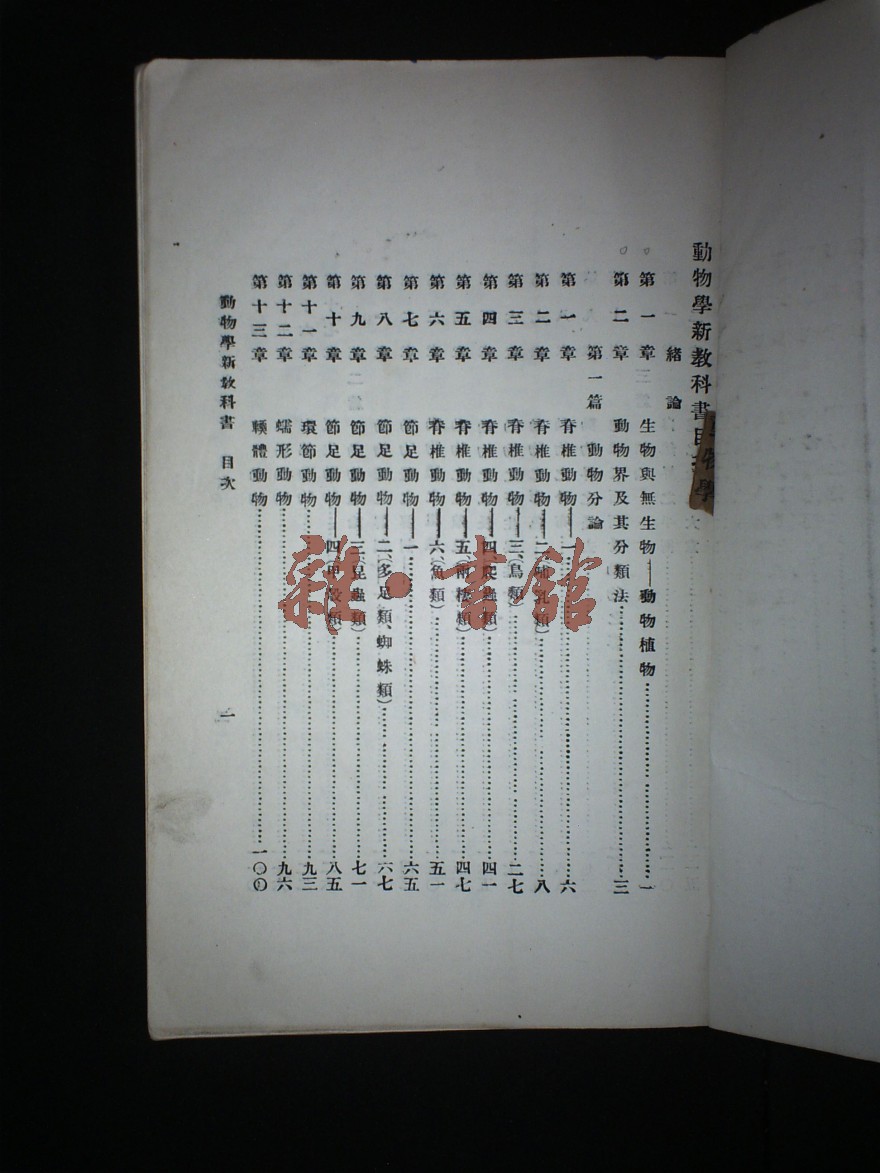 動物學新教科書目
物學
緒論
第一章 生物與無生物——動物植物………一
第二章 動物界及其分類法………三
第一篇 動物分論
第一章 脊椎動物——一………六
第二章 脊椎動物——二、(哺乳類)………八
第三章 脊椎動物——三、(鳥類)………二七
第四章 脊椎動物——四、(爬蟲類)………四一
第五章 脊椎動物——五、(兩棲類)………四七
第六章 脊椎動物——六、(魚類)………五一
第七章 節足動物——一………六五
第八章 節足動物——二、(多足類、蜘蛛類)………六七
第九章 節足動物——三、(昆蟲類)………七一
第十章 節足動物——四、(甲殼類)………八五
第十一章 環節動物………九三
第十二章 蠕形動物………九六
第十三章 輭體動物………一〇〇
動物學新教科書 目次 一
雜·書館